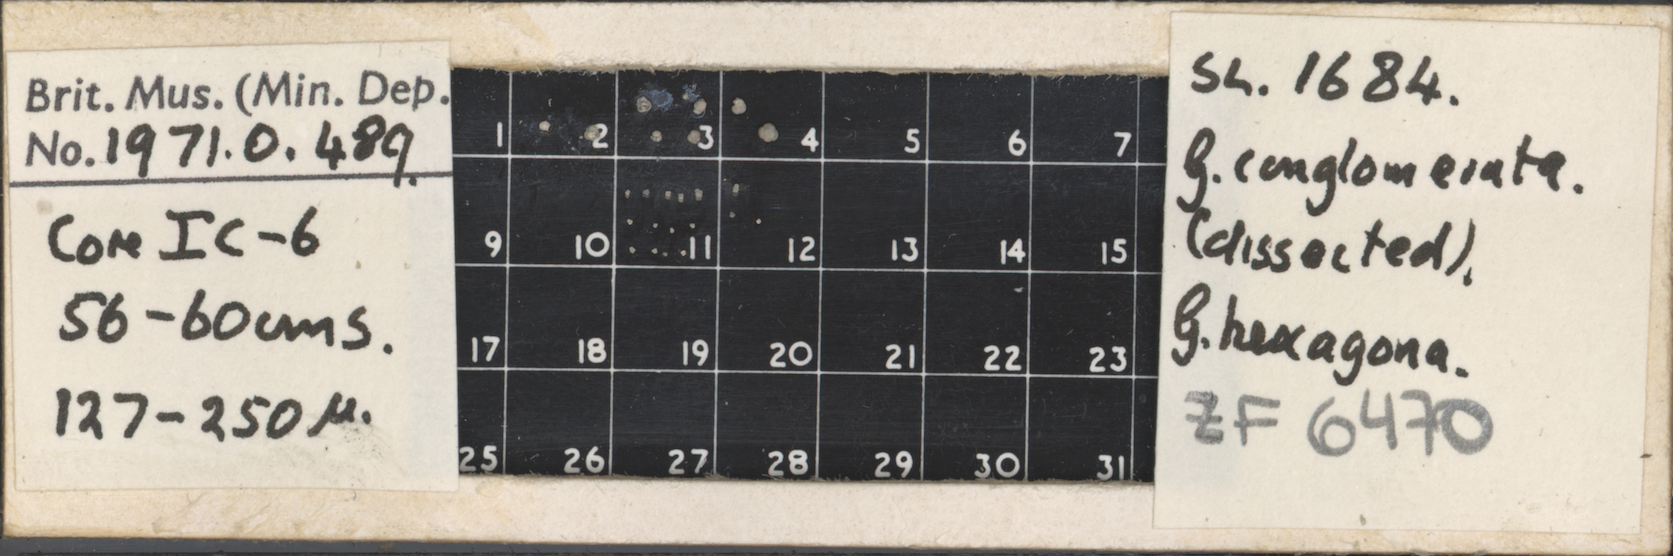 Brit. Mus. (Min. Dep.
No. 1971.O.489.
Core IC-6
56-60cms.
127-250 µ.
1 2 3 4 5 6 7
9 10 11 12 13 14 15
17 18 19 20 21 22 23
25 26 27 28 29 30 31
SL. 1684.
G. conglomerata.
(dissected).
G. hexagona.
ZF 6470